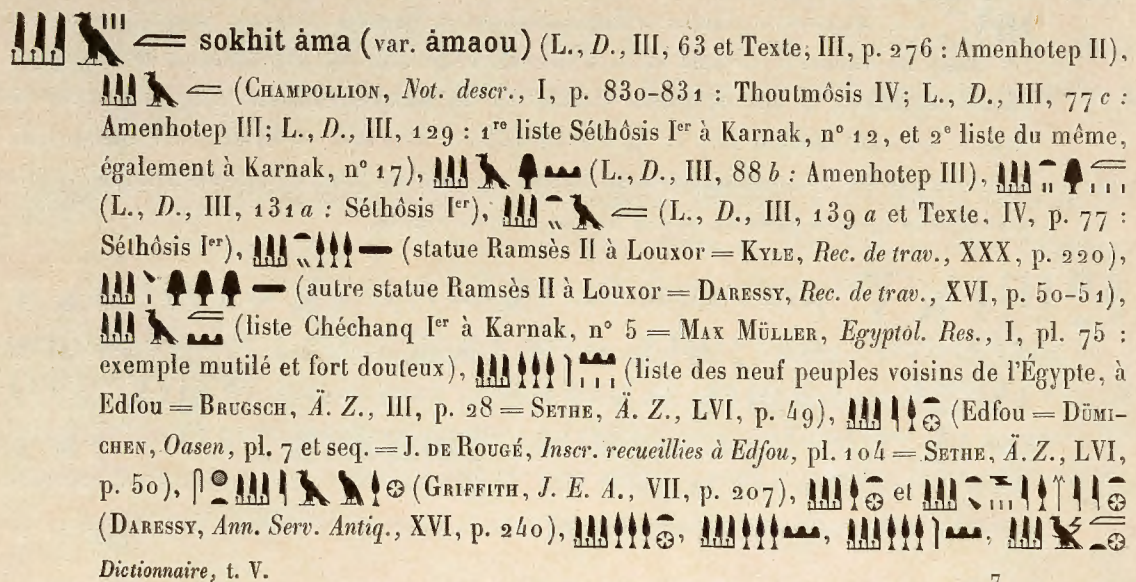 sokhit âma (var. âmaou) (L., D., III, 63 et Texte, III, p. 276 : Amenhotep II),
(CHAMPOLLION, Not. descr., I, p. 830-831 : Thoutmôsis IV; L., D., III, 77 c :
Amenhotep III; L., D., III, 129 : 1re liste Séthôsis Ier à Karnak, n° 12, et 2e liste du même,
également à Karnak, n° 17), (L., D., III, 88 b : Amenhotep III),
(L., D., III, 131 a : Séthôsis Ier), (L., D., III, 139 a et Texte, IV, p. 77 :
Séthôsis Ier), (statue Ramsès II à Louxor = KYLE, Rec. de trav., XXX, p. 220),
(autre statue Ramsès II à Louxor = DARESSY, Rec. de trav., XVI, p. 50-51),
(liste Chéchanq Ier à Karnak, n° 5 = MAX MÜLLER, Egyptol. Res., I, pl. 75 :
exemple mutilé et fort douteux), (liste des neuf peuples voisins de l'Égypte, à
Edfou = BRUGSCH, Ä. Z., III, p. 28 = SETHE, Ä. Z., LVI, p. 49), (Edfou = DÜMI-
CHEN, Oasen, pl. 7 et seq. = J. DE ROUGÉ, Inscr. recueillies à Edfou, pl. 104 = SETHE, Ä. Z., LVI,
p. 50), (GRIFFITH, J. E. A., VII, p. 207), et
(DARESSY, Ann. Serv. Antiq., XVI, p. 240), , , ,
Dictionnaire, t. V. 7